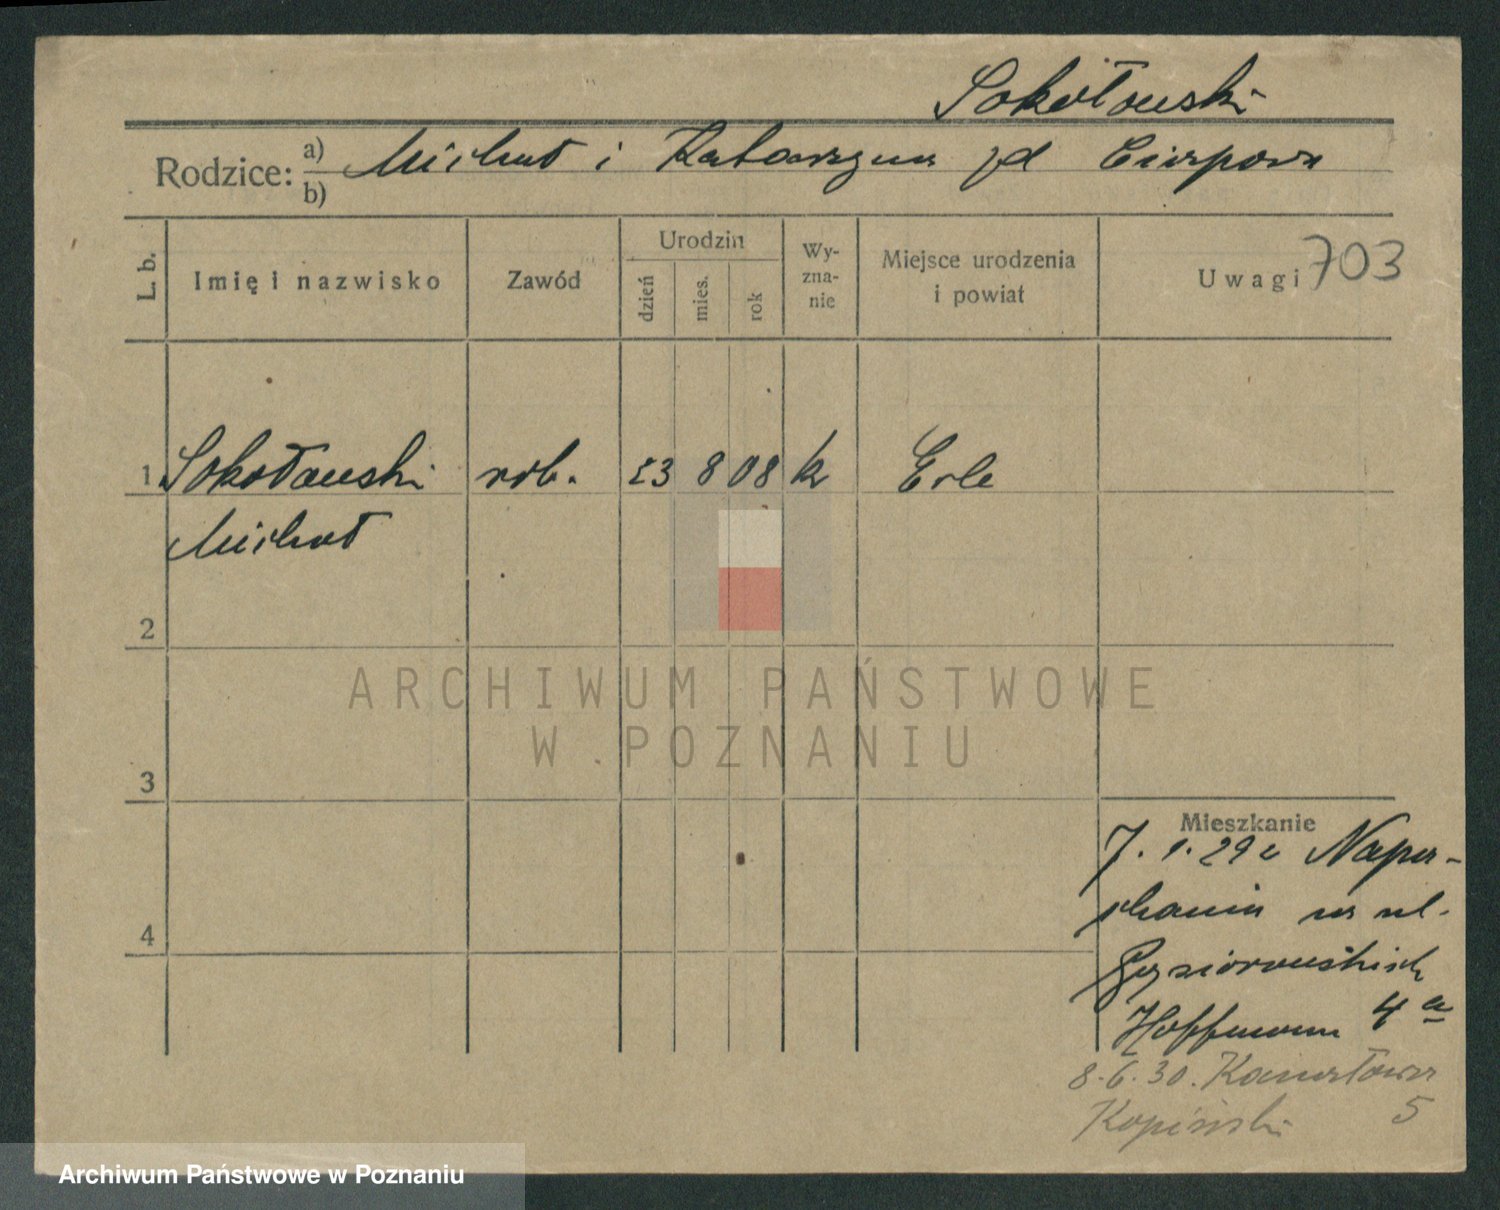 Sokołowski
Rodzice: a) Michał i Katarzyna zd Cierpova
b)
L. b.
Imię i nazwisko
Zawód
Urodzin
dzień
mies.
rok
Wy-
zna-
nie
Miejsce urodzenia
i powiat
Uwagi 703
1 Sokołowski rob. 23 8 08 k Erle
Michał
2
3
4
ARCHIWUM PAŃSTWOWE
W POZNANIU
Mieszkanie
7. 1. 29 z
na ul.
Gąsiorowskich
Hoffmann 4a
8.6.30. Kanałowa
Kopiński 5
Archiwum Państwowe w Poznaniu